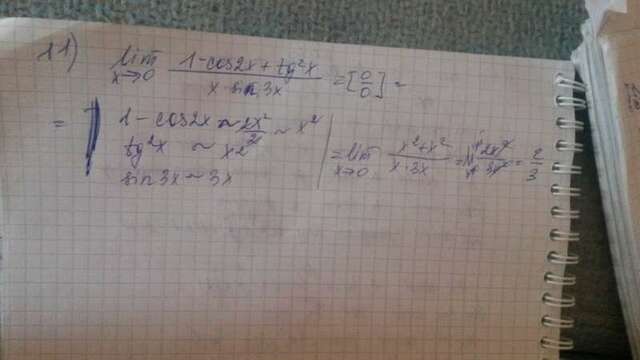 11) lim x→0 (1-cos2x + tg²x)/(x·sin3x) = [0/0] =
= | 1-cos2x ~ 2x²/2 ~ x²
tg²x ~ x²
sin3x ~ 3x
= lim x→0 (x²+x²)/(x·3x) = 2x²/3x² = 2/3